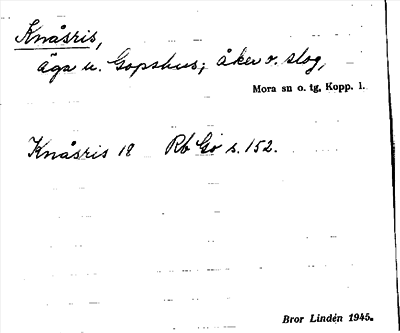 Knåsris,
äga u. Gopshus; åker o. slog,
Mora sn o. tg, Kopp. l.
Knåsris 18 Rb Go s. 152.
Bror Lindén 1945.